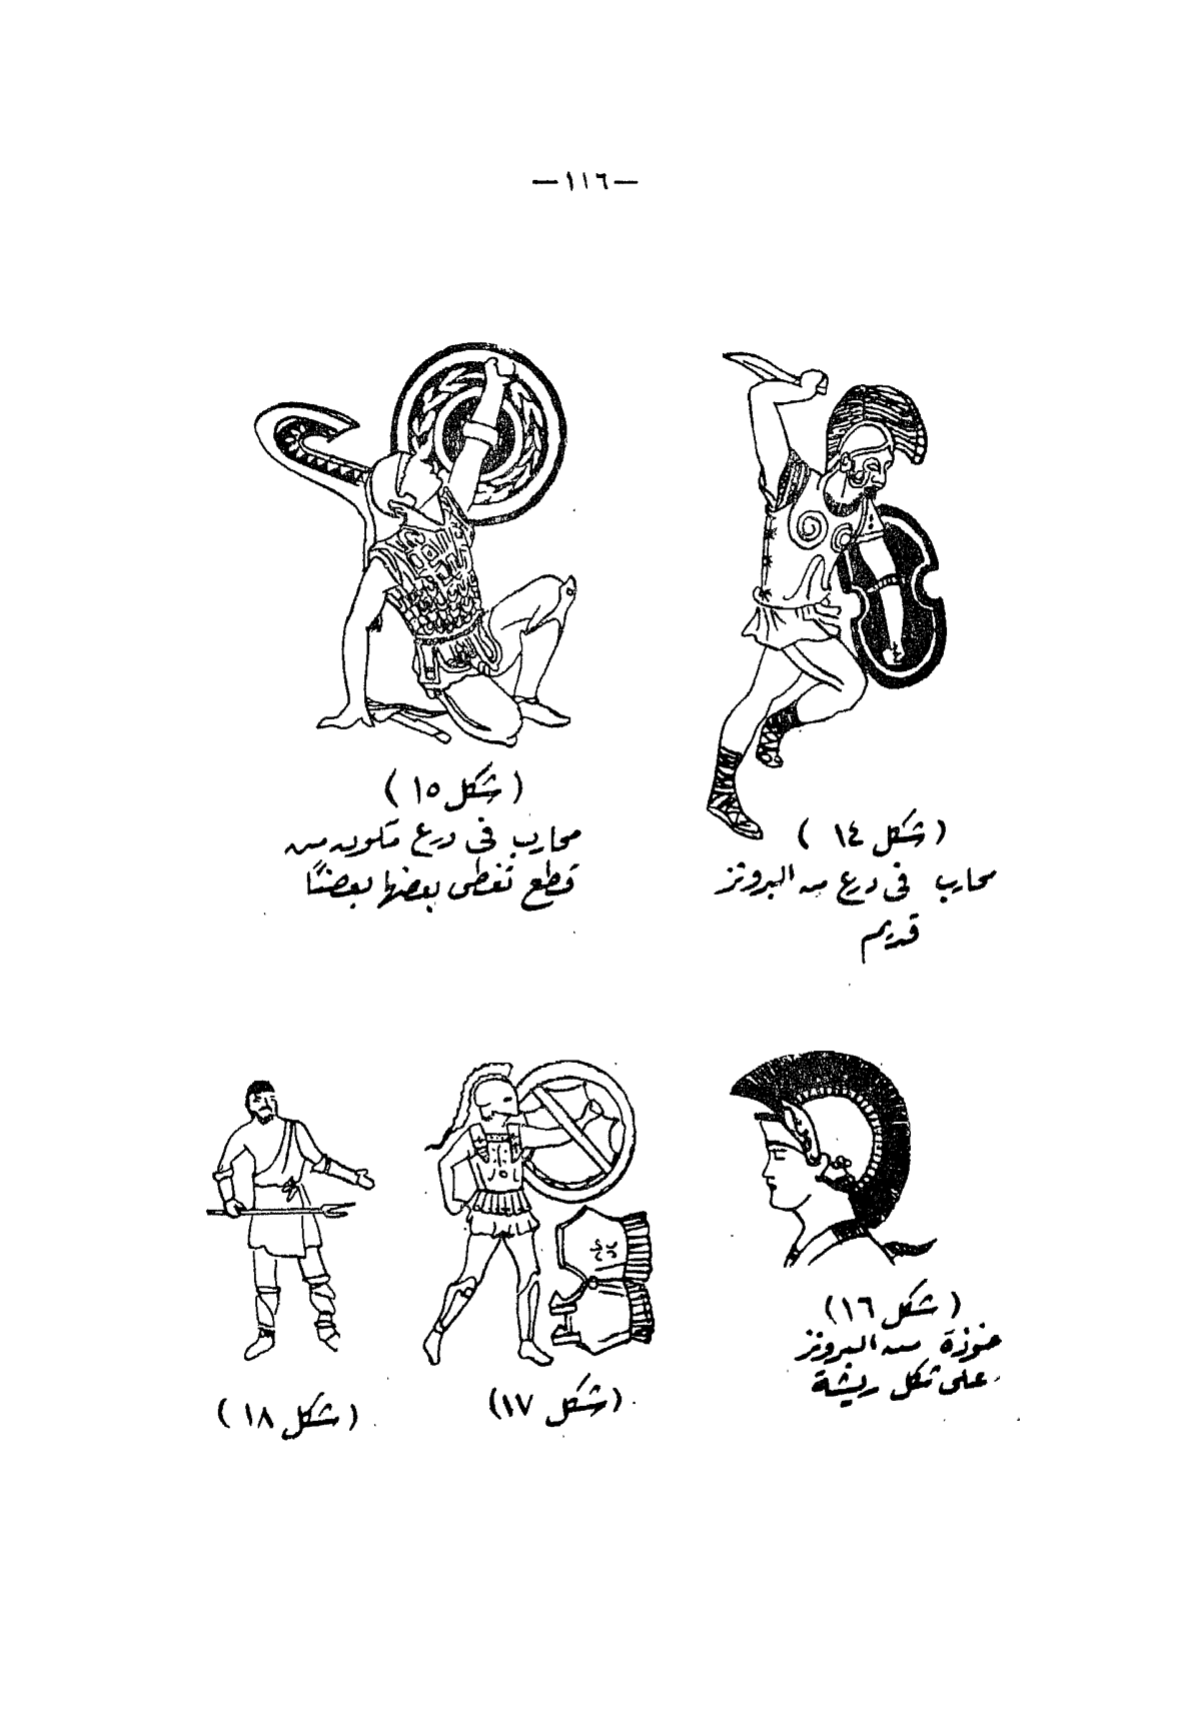 —١١٦—
(شكل ١٤)
محارب في درع من البرونز
قديم
(شكل ١٥)
محارب في درع متكون من
قطع تغطى بعضها بعضًا
(شكل ١٦)
خوذة من البرونز
على شكل ريشة
(شكل ١٧)
(شكل ١٨)